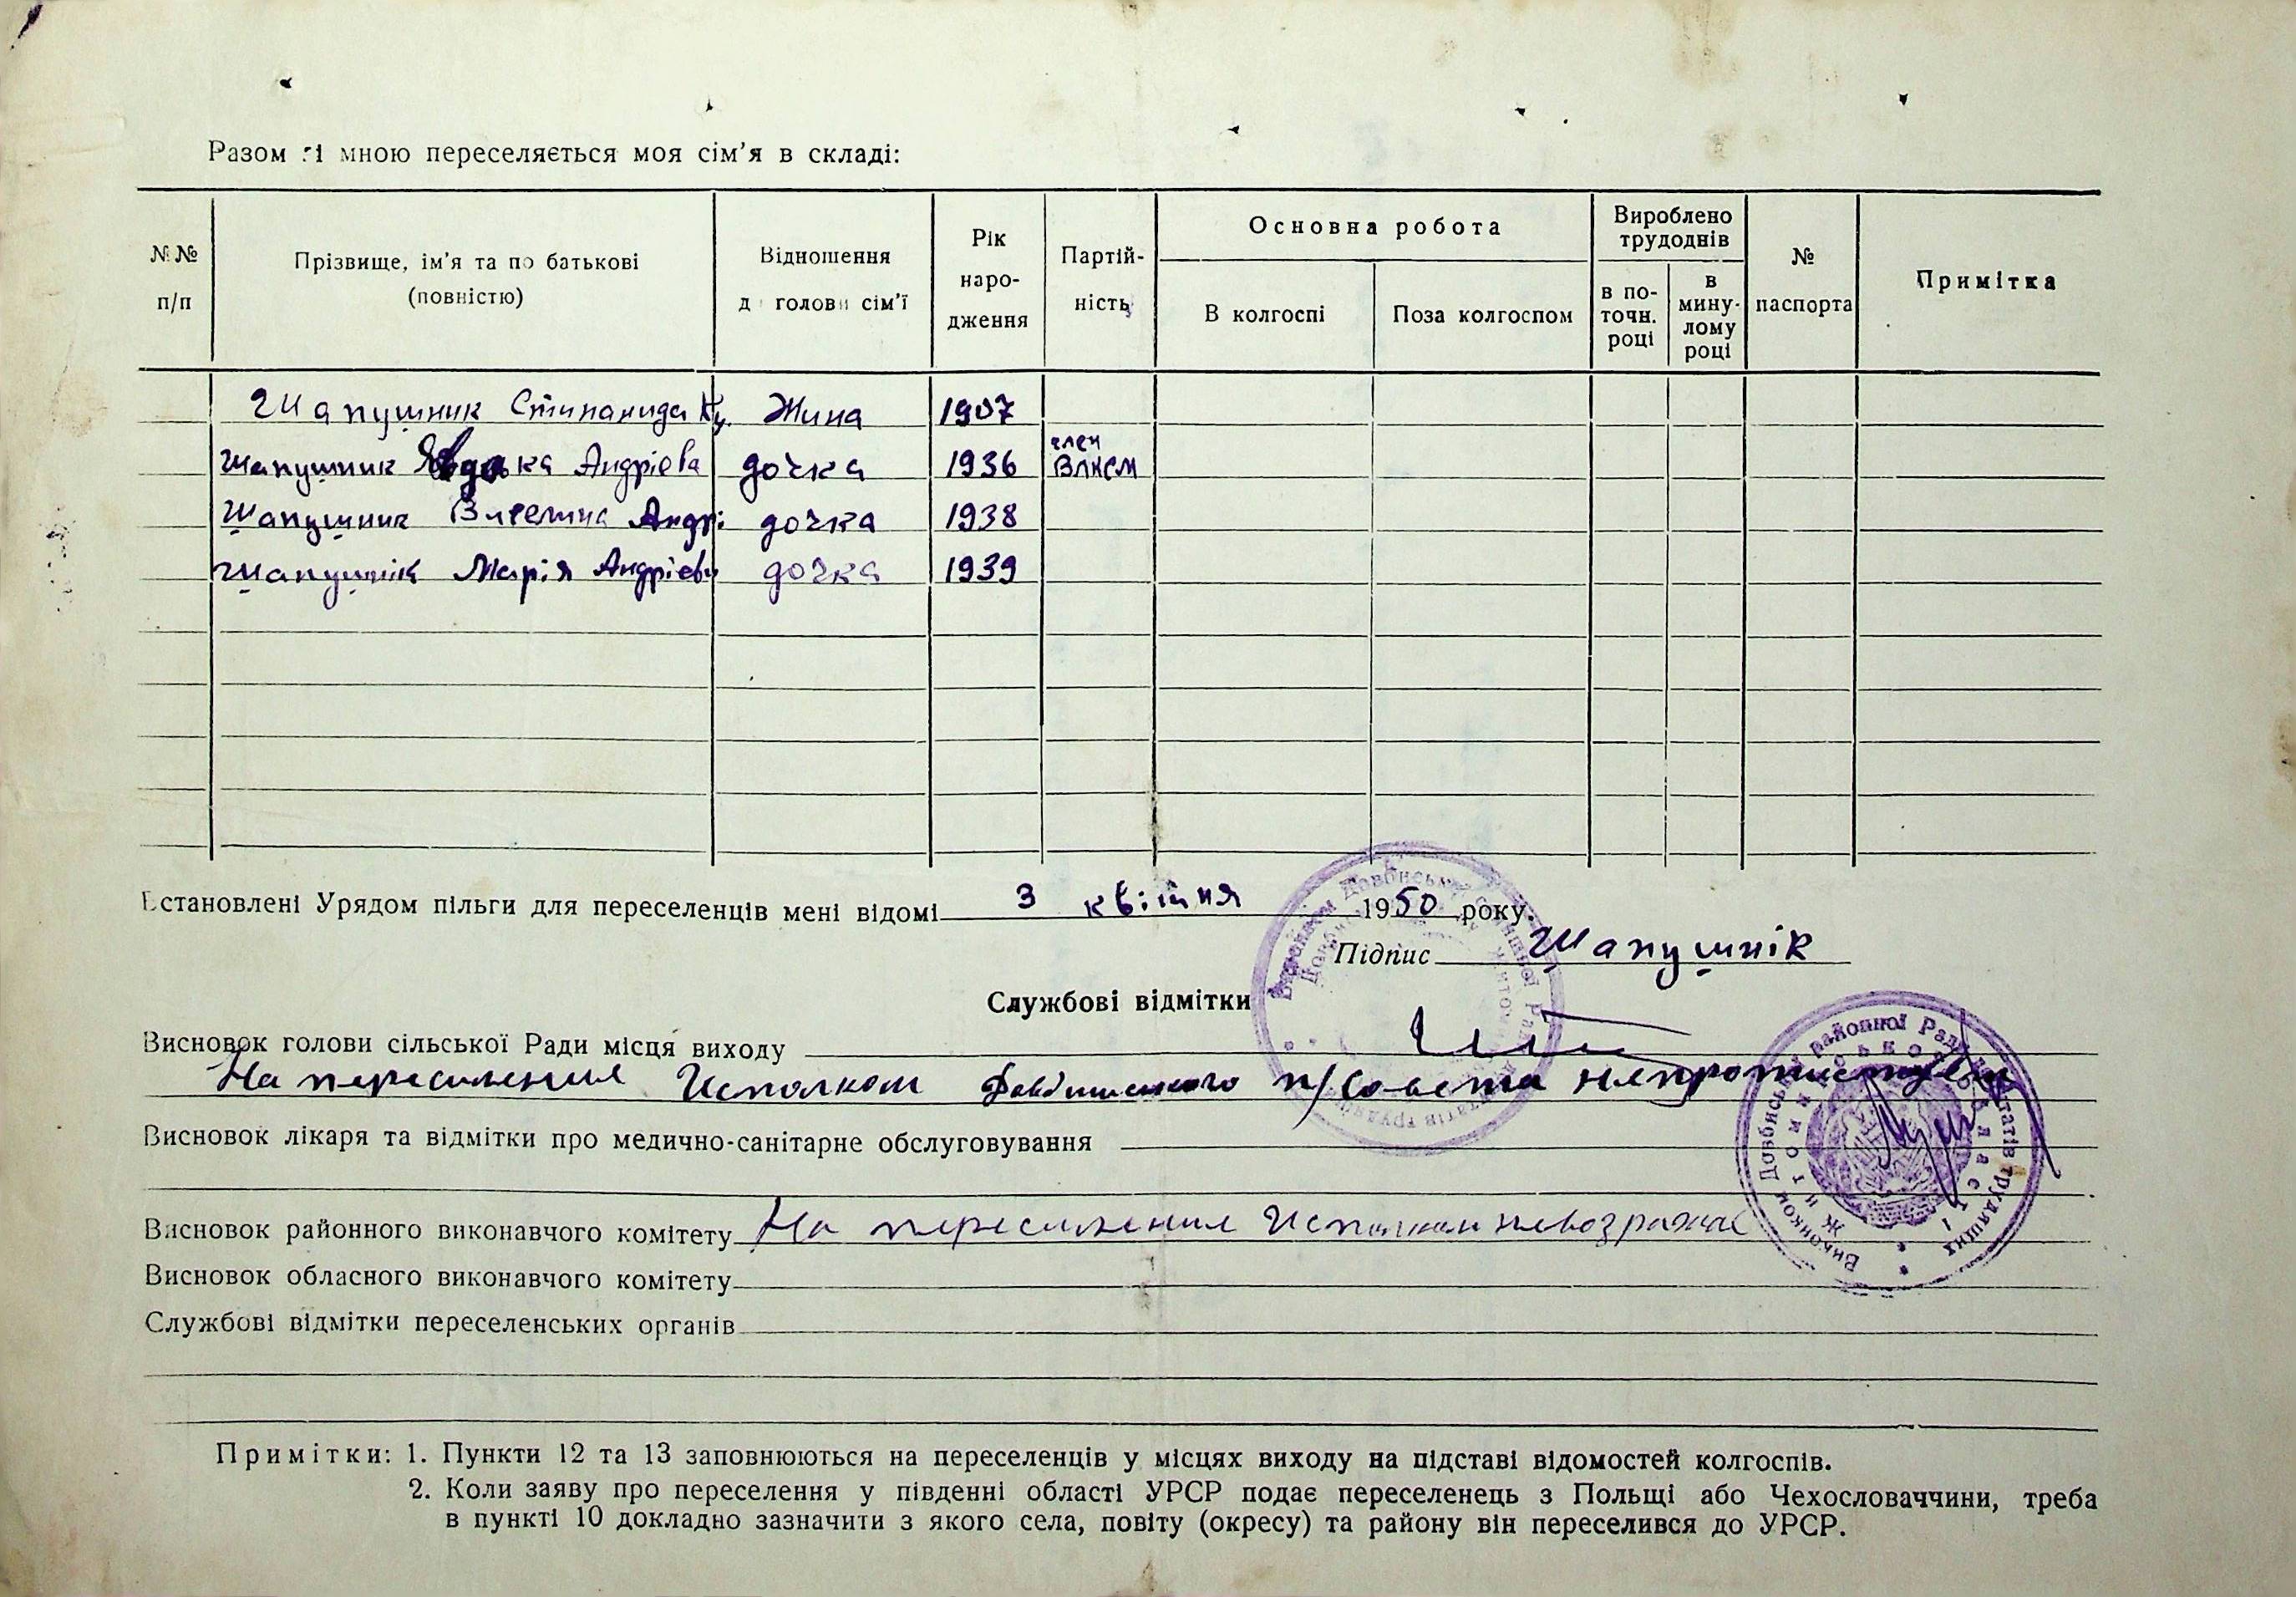 Разом зі мною переселяється моя сім'я в складі:
№№ п/п
Прізвище, ім'я та по батькові (повністю)
Відношення до голови сім'ї
Рік народження
Партійність
Основна робота
В колгоспі
Поза колгоспом
Вироблено трудоднів
в поточн. році
в минулому році
№ паспорта
Примітка
Шапушник Стипанида Жина 1907
Шапушник Явдока Андріева дочка 1936 член ВЛКСМ
Шапушник Андрі дочка 1938
Шапушнік Марія Андріевн дочка 1939
Встановлені Урядом пільги для переселенців мені відомі 3 квітня 1950 року.
Підпис Шапушнік
Службові відмітки
Висновок голови сільської Ради місця виходу
На переселения Исполком Довбишского п/Совета непротистует
Висновок лікаря та відмітки про медично-санітарне обслуговування
Висновок районного виконавчого комітету На переселения Исполком невозражае
Висновок обласного виконавчого комітету
Службові відмітки переселенських органів
Примітки: 1. Пункти 12 та 13 заповнюються на переселенців у місцях виходу на підставі відомостей колгоспів.
2. Коли заяву про переселення у південні області УРСР подає переселенець з Польщі або Чехословаччини, треба
в пункті 10 докладно зазначити з якого села, повіту (окресу) та району він переселився до УРСР.
Виконком Довбиської районної Ради депутатів трудящих
Житомирської області